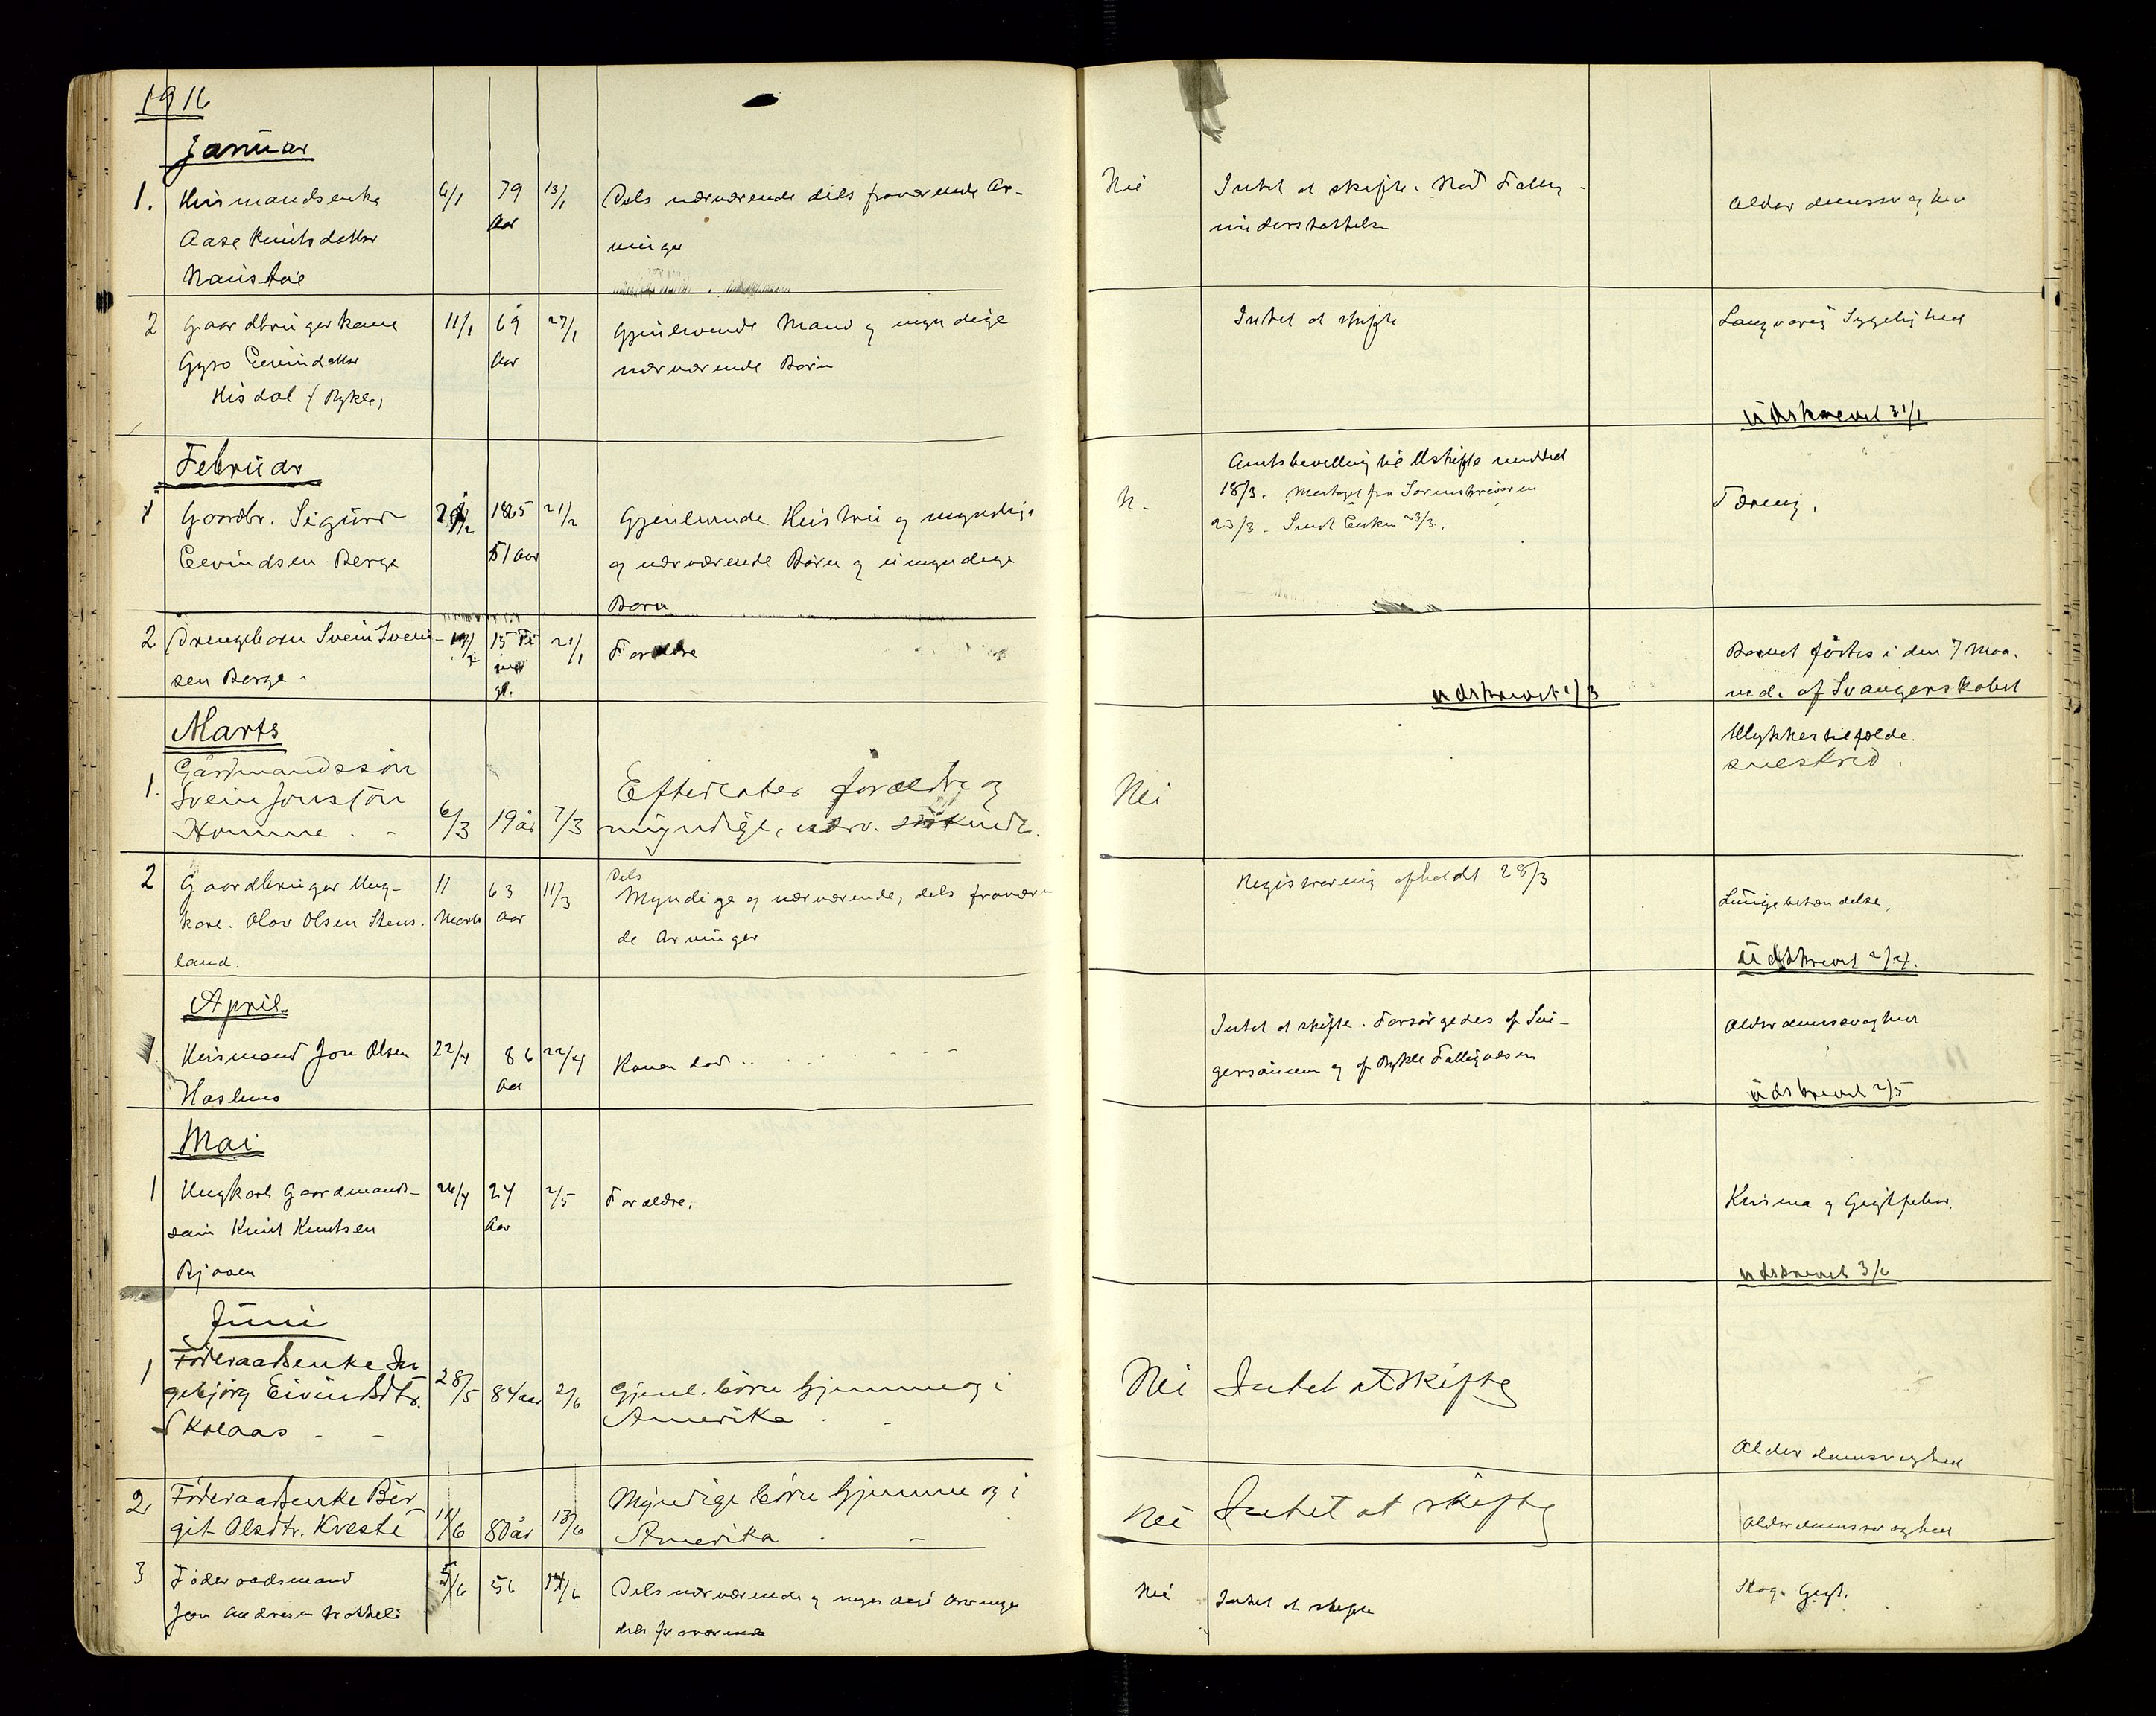 1916
Januar
1. Husmandsenke 6/1 79 13/1 Dels nærværende dels fraværende Ar- Nei Intet at skifte. Nød Fattig- Alderdomssvaghed
Aase Knutsdatter Aar vinger understøttelse
Naustøe
2 Gaardbrugerkone 11/1 69 27/1 Gjenlevende Mand og myndige Intet at skifte Langvarig Sygelighed
Gyro Eevindatter Aar nærværende Børn
Hisdal (Bykle) Udskrevet 31/1
Februar
1 Gaardbr. Sigurd 1865 21/2 Gjenlevende Hustru og myndige N. Amtsbevilling til Uskifte meddel Tæring.
Eevindsen Berge 51 Aar og nærværende Børn og umyndige 18/3. Modtaget fra Sorenskriveren
Børn 23/3. Sendt Enken 23/3.
2 Drengebarn Svein Svein- 15 Ti 21/1 Forældre Barnet fødtes i den 7 Maa-
sen Berge - gl. Udskrevet 1/3 ned. af Svangerskabet
Marts
1. Gårdmandssøn Ulykkestilfælde.
Svein Jonssøn Efterlater forældre og Nei sneskred.
Homme. - 6/3 19 år 7/3 myndige, nærv. søskende.
2 Gaardbruger Ung- 11 63 11/3 Dels Myndige og nærværende, dels fravær- Registrering afholdt 28/3 Lungebetændelse,
karl. Olav Olsen Stens- Marts Aar de Arvinger
land. Udskrevet 2/4.
April
1. Husmand Jon Olsen 22/4 86 22/4 Konen død Intet at skifte. Forsørgedes af Svi- Alderdomssvaghed
Haslemo Aar gersønnen og af Bykle Fattigvæsen
Udskrevet 2/5
Mai
1 Ungkarl Gaardmands- 26/4 24 2/5 Forældre.
søn Knut Knutsen Aar og Gigtfeber.
Bjaaen Udskrevet 3/6
Juni
1 Føderaadsenke In
gebjørg Eivindsdtr. 28/5 84 aar 2/6 Gjenl. börn hjemme og i Nei Intet at skifte
Skolaas - - Amerika. - Alderdomssvaghed
2. Føderaadsenke Bir Myndige börn hjemme og i Nei Intet at skifte
git Olsdtr. Kvestè 11/6 80 år 13/6 Amerika. - Alderdomssvaghed
3 Føderaadsmand 5/6 56 14/6 Dels nærværende og myndige Arvinge Nei Intet at skifte Gigt.
Jon Andresen Trætteli dels fraværende